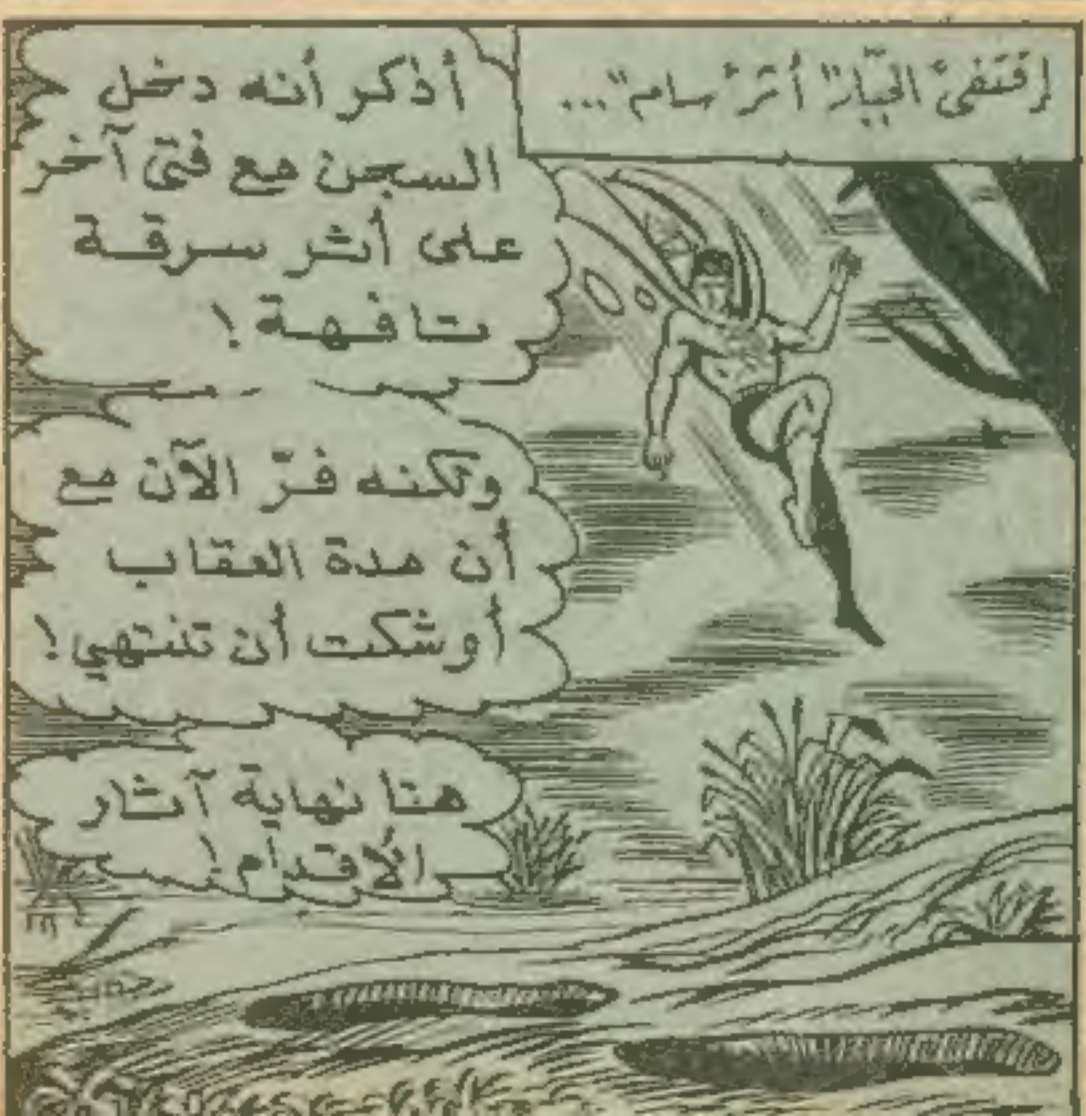 إقتفىَ الجبّار" أثرَ "سام"...
أذكر أنه دخل
السجن مع فتى آخر
على أثر سرقة
تافهة !
ولكنه فرّ الآن مع
أن مدة العقاب
أوشكت أن تنتهي !
هنا نهاية آثار
الأقدام !